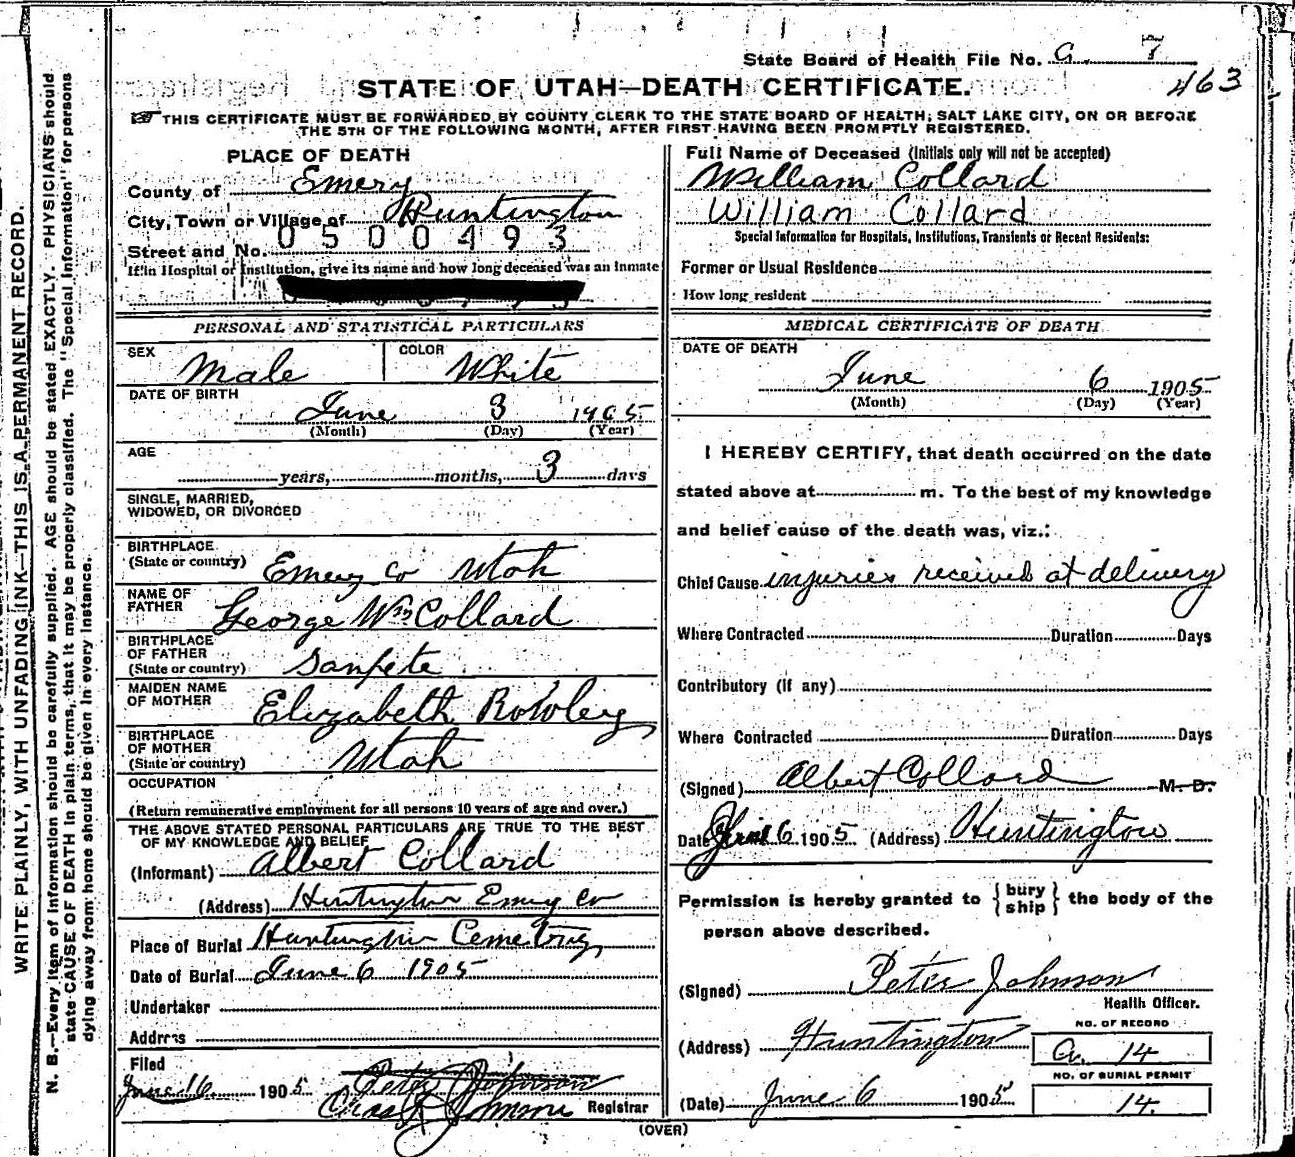 State Board of Health File No. G. 7
463
STATE OF UTAH—DEATH CERTIFICATE.
THIS CERTIFICATE MUST BE FORWARDED BY COUNTY CLERK TO THE STATE BOARD OF HEALTH, SALT LAKE CITY, ON OR BEFORE
THE 5TH OF THE FOLLOWING MONTH, AFTER FIRST HAVING BEEN PROMPTLY REGISTERED.
WRITE PLAINLY, WITH UNFADING INK—THIS IS A PERMANENT RECORD.
N. B.—Every item of information should be carefully supplied. AGE should be stated EXACTLY. PHYSICIANS should
state CAUSE OF DEATH in plain terms, that it may be properly classified. The "Special Information" for persons
dying away from home should be given in every instance.
PLACE OF DEATH
County of Emery
City, Town or Village of Huntington
Street and No. 0500493
If in Hospital or Institution, give its name and how long deceased was an inmate
PERSONAL AND STATISTICAL PARTICULARS
SEX Male COLOR White
DATE OF BIRTH
June 3 1905
(Month) (Day) (Year)
AGE
years, months, 3 days
SINGLE, MARRIED,
WIDOWED, OR DIVORCED
BIRTHPLACE
(State or country) Emery Co Utah
NAME OF
FATHER George Wm Collard
BIRTHPLACE
OF FATHER
(State or country) Sanpete
MAIDEN NAME
OF MOTHER Elizabeth Rowley
BIRTHPLACE
OF MOTHER
(State or country) Utah
OCCUPATION
(Return remunerative employment for all persons 10 years of age and over.)
THE ABOVE STATED PERSONAL PARTICULARS ARE TRUE TO THE BEST
OF MY KNOWLEDGE AND BELIEF
(Informant) Albert Collard
(Address) Huntington Emery Co
Place of Burial Huntington Cemetry
Date of Burial June 6 1905
Undertaker
Address
Filed
June 16 1905 Peter Johnson
Johnson Registrar
Full Name of Deceased (Initials only will not be accepted)
William Collard
William Collard
Special Information for Hospitals, Institutions, Transients or Recent Residents:
Former or Usual Residence
How long resident
MEDICAL CERTIFICATE OF DEATH
DATE OF DEATH
June 6 1905
(Month) (Day) (Year)
I HEREBY CERTIFY, that death occurred on the date
stated above at m. To the best of my knowledge
and belief cause of the death was, viz.:
Chief Cause injuries received at delivery
Where Contracted Duration Days
Contributory (If any)
Where Contracted Duration Days
(Signed) Albert Collard M. D.
Date June 6 1905 (Address) Huntington
Permission is hereby granted to { bury ship } the body of the
person above described.
(Signed) Peter Johnson
Health Officer.
(Address) Huntington
NO. OF RECORD
G. 14
NO. OF BURIAL PERMIT
14.
(Date) June 6 1905
(OVER)